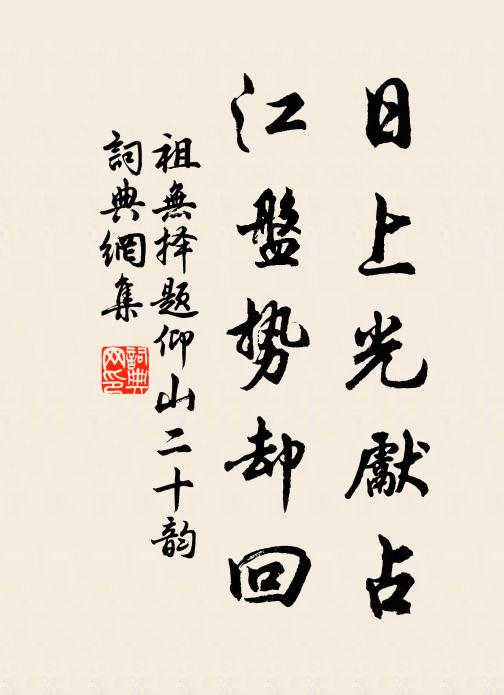 日上光獻占
江盤勢却回
祖無择题仰山二十韵
詞典網集
詞典网印